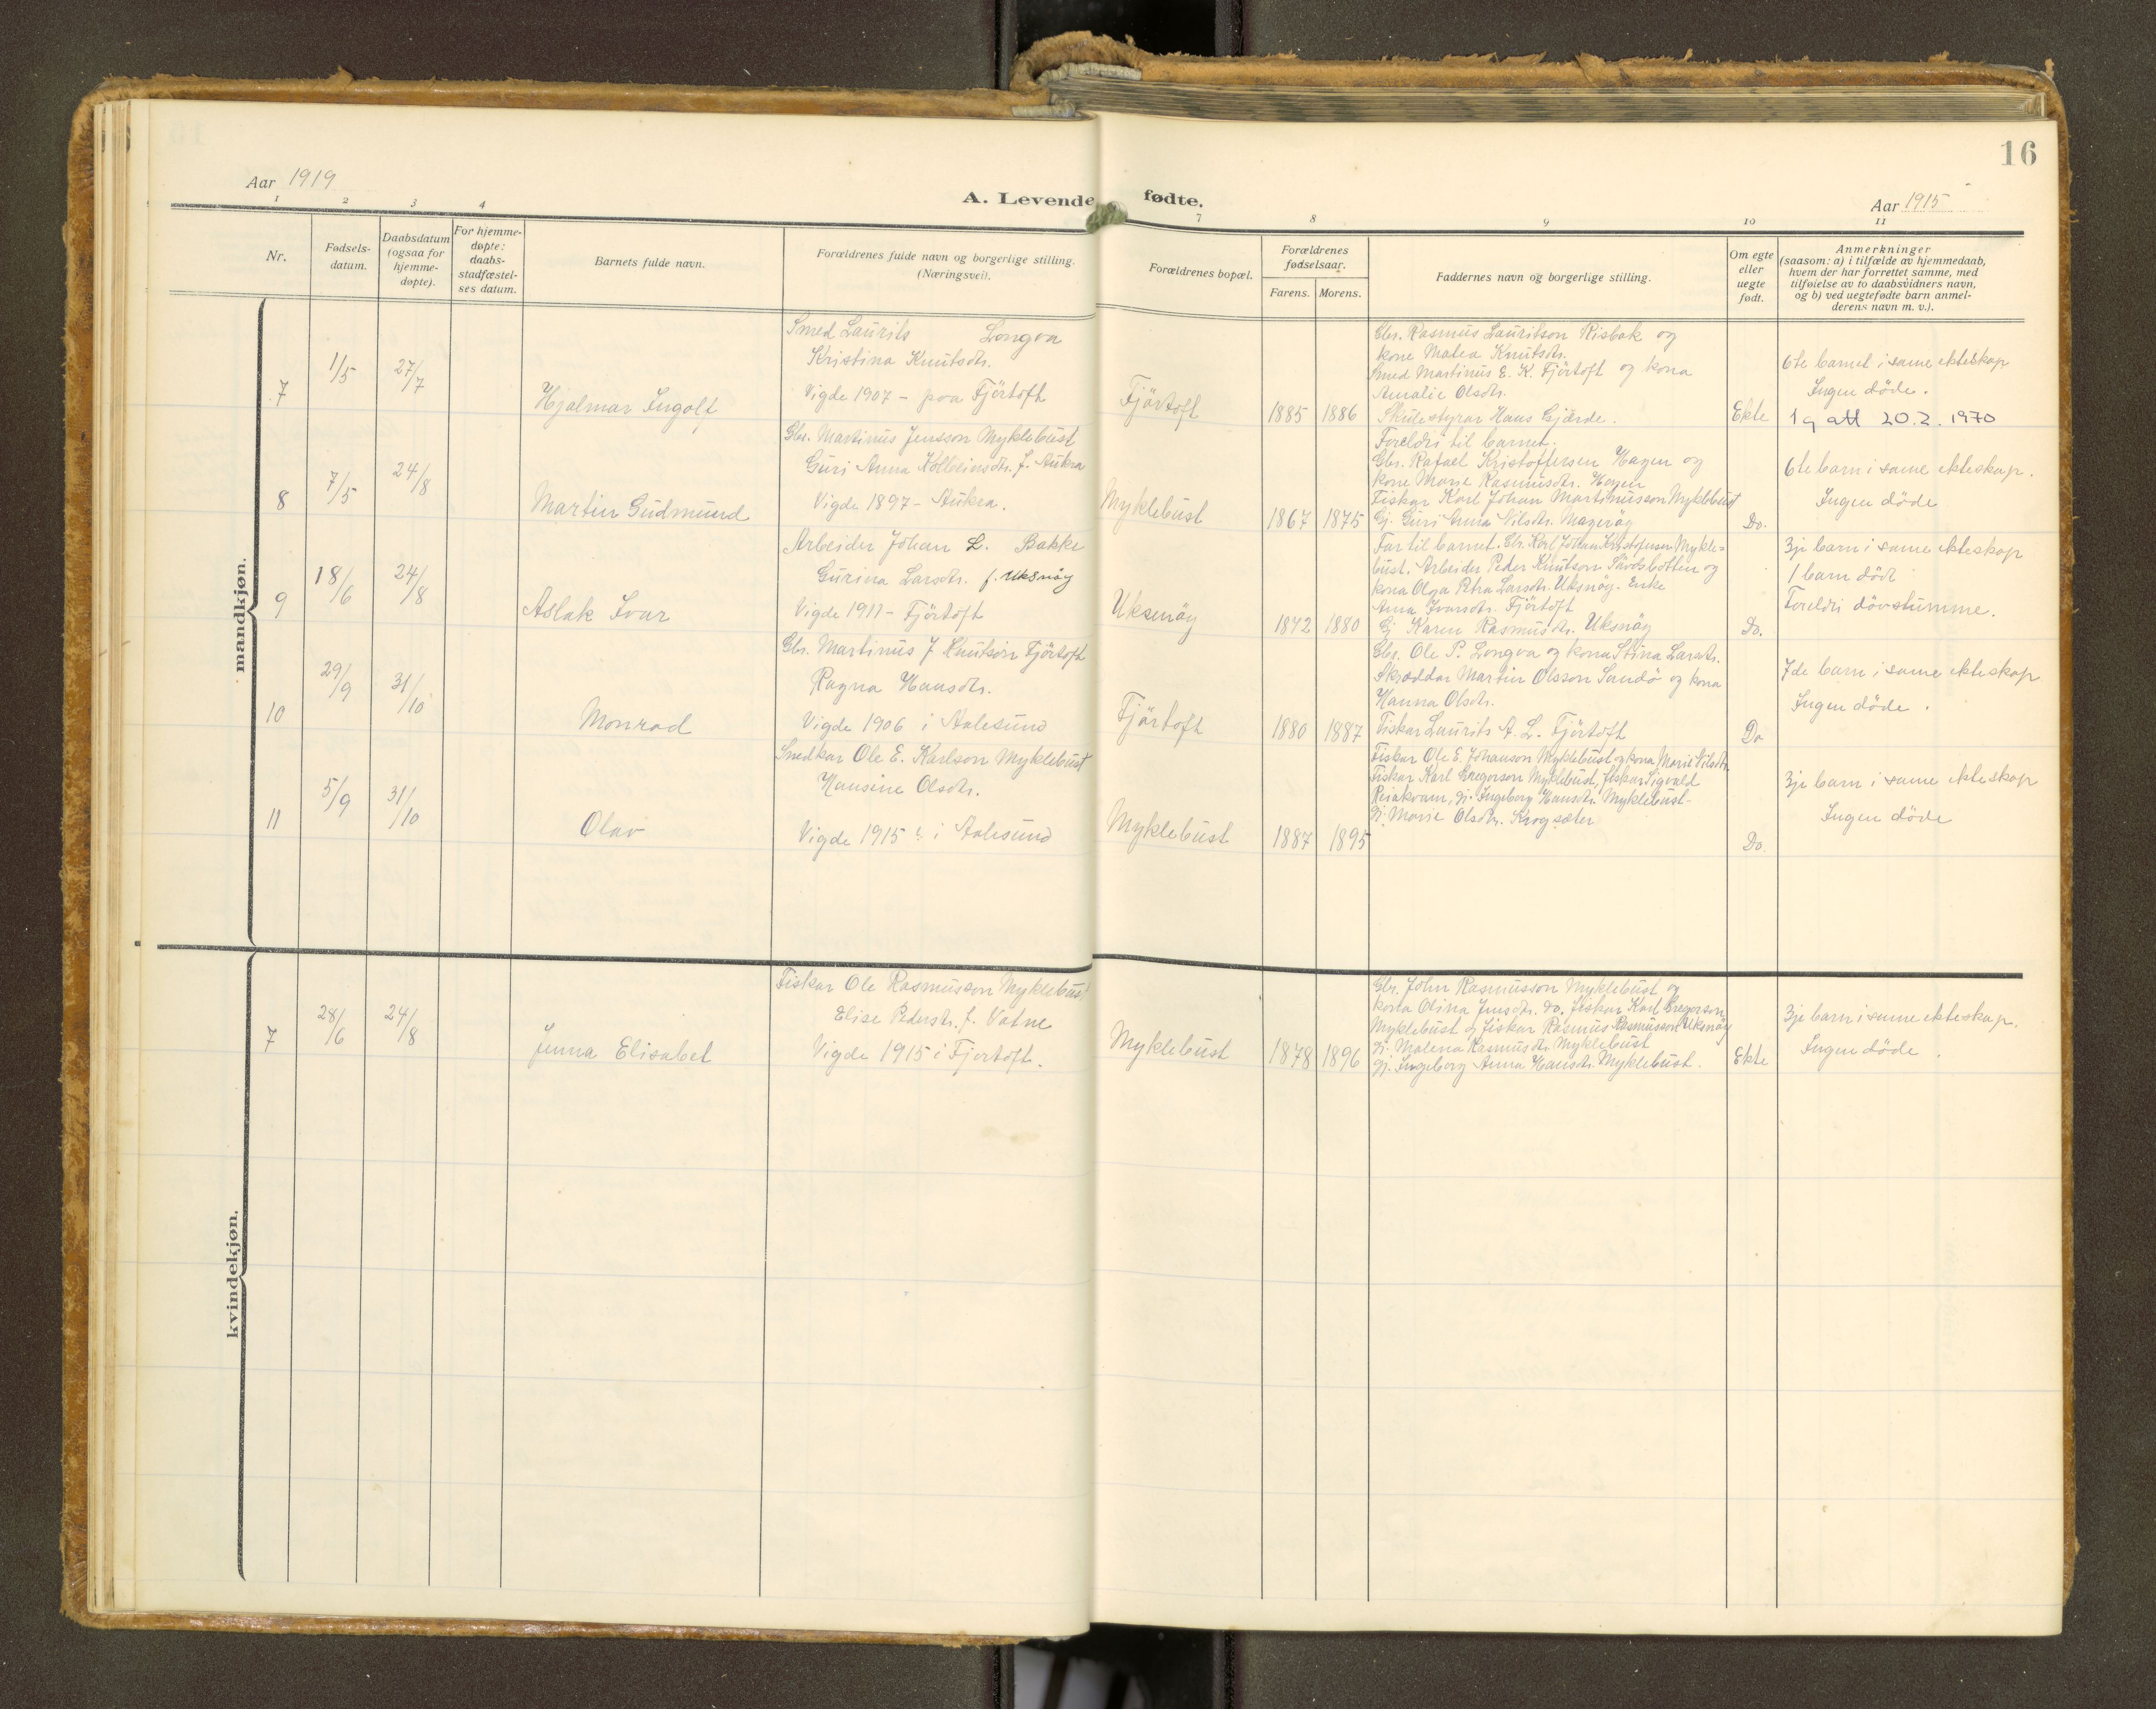 16
Aar 1919
A. Levende fødte.
Aar 1915
1 2 3 4 7 8 9 10 11
Nr.
Fødsels-
datum.
Daabsdatum
(ogsaa for
hjemme-
døpte).
For hjemme-
døpte:
daabs-
stadfæstel-
ses datum.
Barnets fulde navn.
Forældrenes fulde navn og borgerlige stilling.
(Næringsvei).
Forældrenes bopæl.
Forældrenes
fødselsaar.
Farens. Morens.
Faddernes navn og borgerlige stilling.
Om egte
eller
uegte
født.
Anmerkninger
(saasom: a) i tilfælde av hjemmedaab,
hvem der har forrettet samme, med
tilføielse av to daabsvidners navn,
og b) ved uegtefødte barn anmel-
derens navn m. v.).
mandkjøn.
7
1/5
27/7
Hjalmar Ingolf
Smed Laurits Longva
Kristina Knutsdtr.
Vigde 1907 - paa Fjörtoft
Fjörtoft
1885 1886
Gbr. Rasmus Lauritson Risbak og
kone Matea Knutsdtr.
Smed Martinus E. K. Fjörtoft og kona
Amalie Olsdtr.
Skulestyrar Hans Gjärde.
Ekte
6te barnet i same ekteskap
Ingen döde.
1 g att 20.2.1970
8
7/5
24/8
Martin Gudmund
Gbr. Martinus Jensson Myklebust
Guri Anna Kolbeinsdtr. f. Aukra
Vigde 1897 - Aukra.
Myklebust
1867 1875
Foreldri til barnet.
Gbr. Rafael Kristoffersen Hagen og
kone Marie Rasmusdtr. Hagen
Fiskar Karl Johan Martinusson Myklebust
Gj. Guri Anna Nilsdtr. Mageröy
Do.
6te barn i same ekteskap.
Ingen döde
9
18/6
24/8
Aslak Ivar
Arbeider Johan L. Bakke
Gurina Larsdtr. f. Uksnöy
Vigde 1911 - Fjörtoft
Uksnöy
1872 1880
Far til barnet. Gbr. Karl Johan Kristofersen Mykle=
bust. Arbeider Peder Knutson Sävdsbotten og
kona Olga Petra Larsdtr. Uksnöy. Enke
Anna Ivarsdtr. Fjörtoft
Gj Karen Rasmusdtr. Uksnöy
Do.
3je barn i same ekteskap
1 barn död
Foreldri dövstumme.
10
29/9
31/10
Monrad
Gbr. Martinus J Knutson Fjörtoft
Ragna Hansdtr.
Vigde 1906 i Aalesund
Fjörtoft
1880 1887
Gbr. Ole P. Longva og kona Stina Larsdtr.
Skræddar Martin Olsson Sandö og kona
Hanna Olsdtr.
Fiskar Laurits A. L. Fjörtoft
Do
7de barn i same ekteskap
Ingen döde.
11
5/9
31/10
Olav
Snedkar Ole E. Karlson Myklebust
Hansine Olsdtr.
Vigde 1915 i Aalesund
Myklebust
1887 1895
Fiskar Ole E. Johanson Myklebust og kona Marie Nilsdtr.
Fiskar Karl Gregorson Myklebust, fiskar Sigvald
Reiakvam, gj. Ingeborg Hansdtr. Myklebust -
gj. Marie Olsdtr. Krogsæter
Do.
3je barn i same ekteskap
Ingen döde
kvindekjøn.
7
28/6
24/8
Jenna Elisabet
Fiskar Ole Rasmusson Myklebust
Elise Pedersdtr. f. Vatne
Vigde 1915 i Fjørtoft.
Myklebust
1878 1896
Gbr. John Rasmusson Myklebust og
kona Olina Jensdtr. do. fiskar Karl Gregorson
Myklebust og fiskar Rasmus Rasmusson Uksnöy
gj. Malena Rasmusdtr. Myklebust
gj. Ingeborg Anna Hansdtr. Myklebust.
Ekte
3je barn i same ekteskap.
Ingen döde.